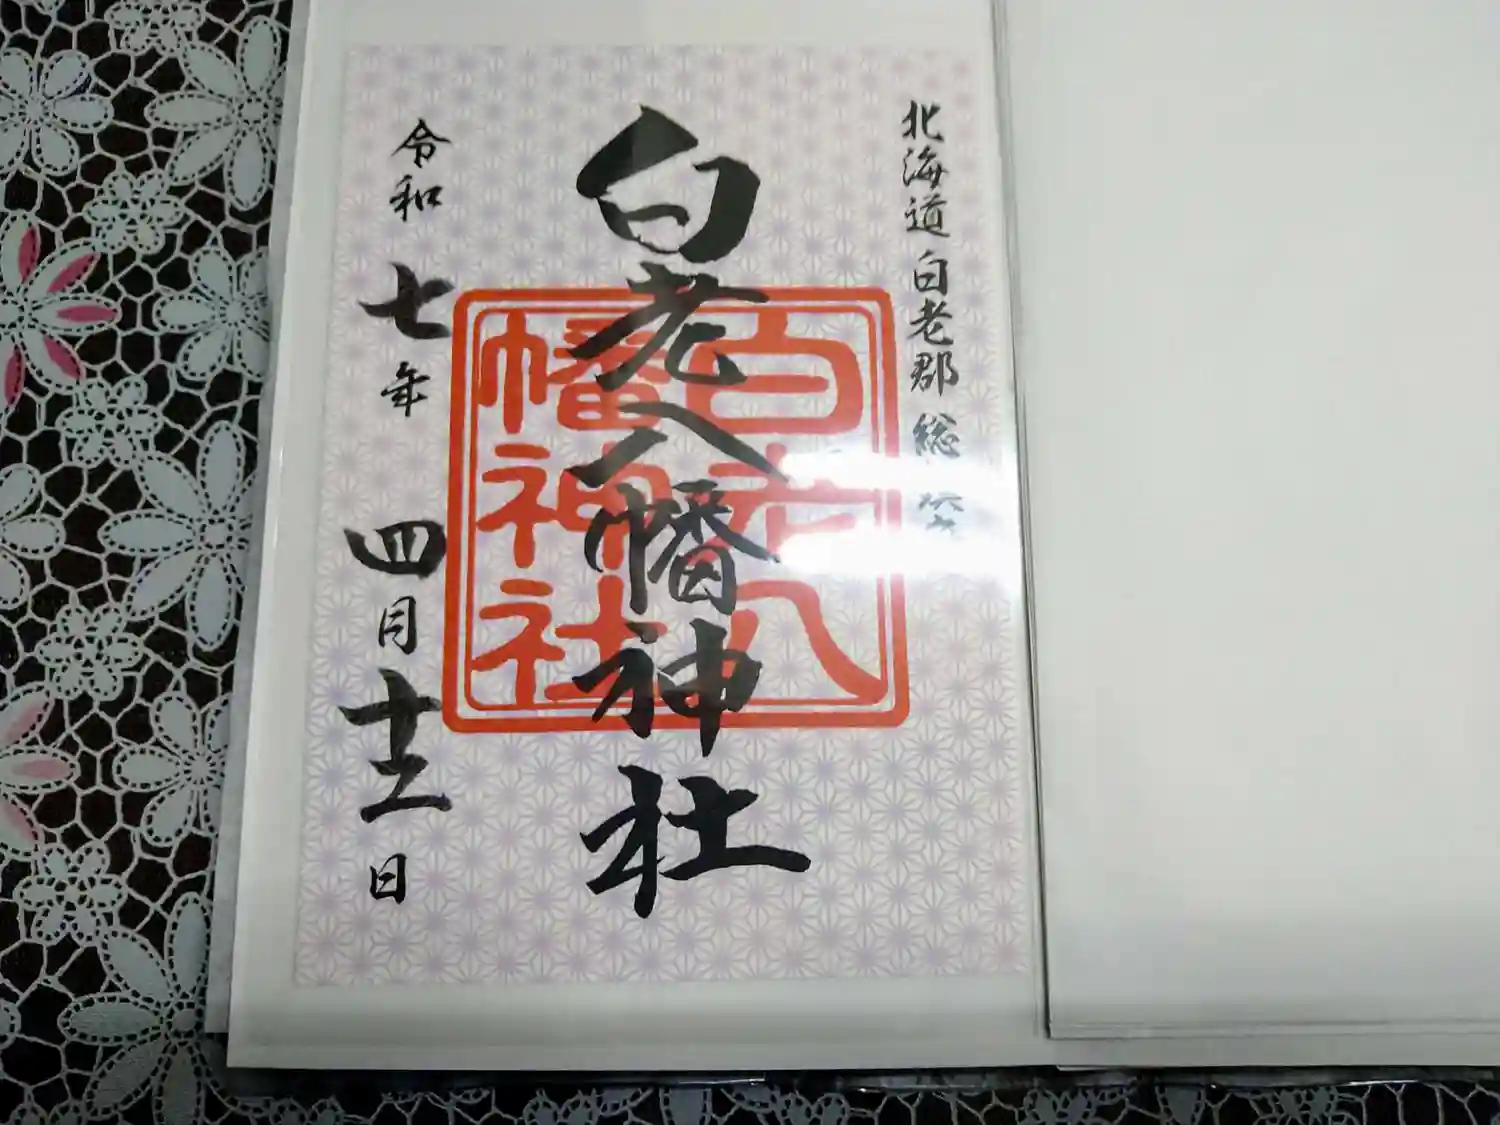 北海道白老郡 総
白老八幡神社
白老八
幡神社
令和七年四月十二日